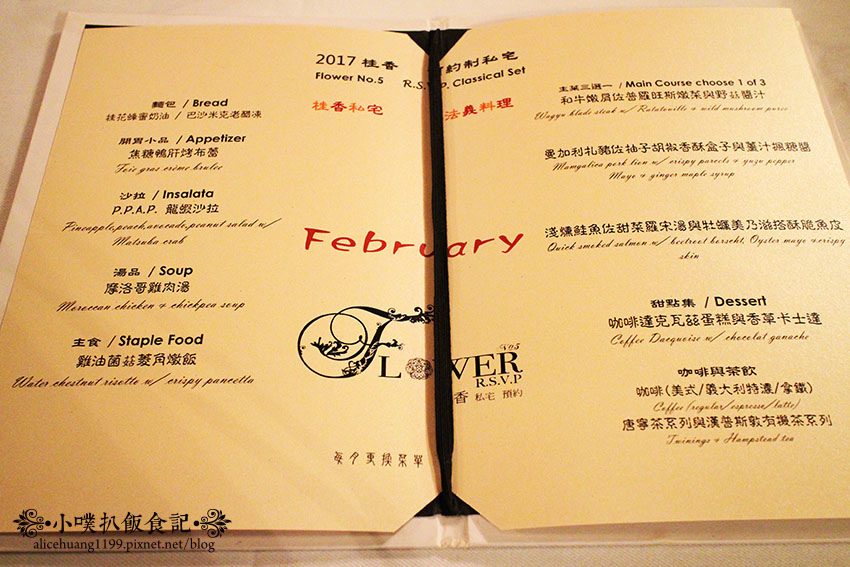 2017 桂香 約制私宅
Flower No.5 R.S.V.P. Classical Set
桂香私宅 法義料理
麵包 / Bread
桂花蜂蜜奶油 / 巴沙米克老醋凍
開胃小品 / Appetizer
焦糖鴨肝烤布蕾
Foie gras crème brulee
沙拉 / Insalata
P.P.A.P. 龍蝦沙拉
Pineapple,peach,avocado,peanut salad w/
Matsuba crab
湯品 / Soup
摩洛哥雞肉湯
Moroccan chicken & chickpea soup
主食 / Staple Food
雞油菌菇菱角燉飯
Water chestnut risotto w/ crispy pancetta
February
FLOWER
No5
R.S.V.P
香 私宅 預約
每月更換菜單
主菜三選一 / Main Course choose 1 of 3
和牛嫩肩佐普羅旺斯燉菜與野菇醬汁
Wagyu blade steak w/ Ratatouille & wild mushroom puree
曼加利札豬佐柚子胡椒香酥盒子與薑汁楓糖醬
Mangalica pork lion w/ crispy parcels & yuzu pepper
Mayo & ginger maple syrup
淺燻鮭魚佐甜菜羅宋湯與牡蠣美乃滋搭酥脆魚皮
Quick smoked salmon w/ beetroot borscht, Oyster mayo &crispy
skin
甜點集 / Dessert
咖啡達克瓦茲蛋糕與香草卡士達
Coffee Dacquoise w/ chocolat ganache
咖啡與茶飲
咖啡(美式/義大利特濃/拿鐵)
Coffee (regular/espresso/latte)
唐寧茶系列與漢普斯敦有機茶系列
Twinings & Hampstead tea
小噗扒飯食記
alicehuang1199.pixnet.net/blog